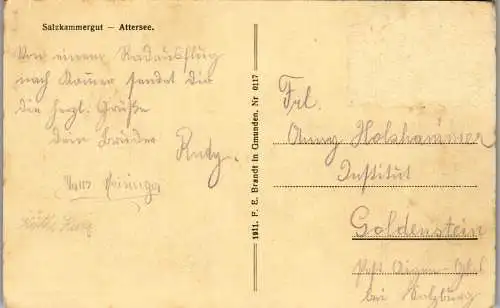 Salzkammergut — Attersee.
Von einem Radausflug
nach Kammer sendet dir
die herzl. Grüße
dein Bruder
Rudy.
Hans
1911. F. E. Brandt in Gmunden. Nr 0117
Frl.
Anny Holzhammer
Institut
Goldenstein
Post Aigen-Gl
bei Salzburg